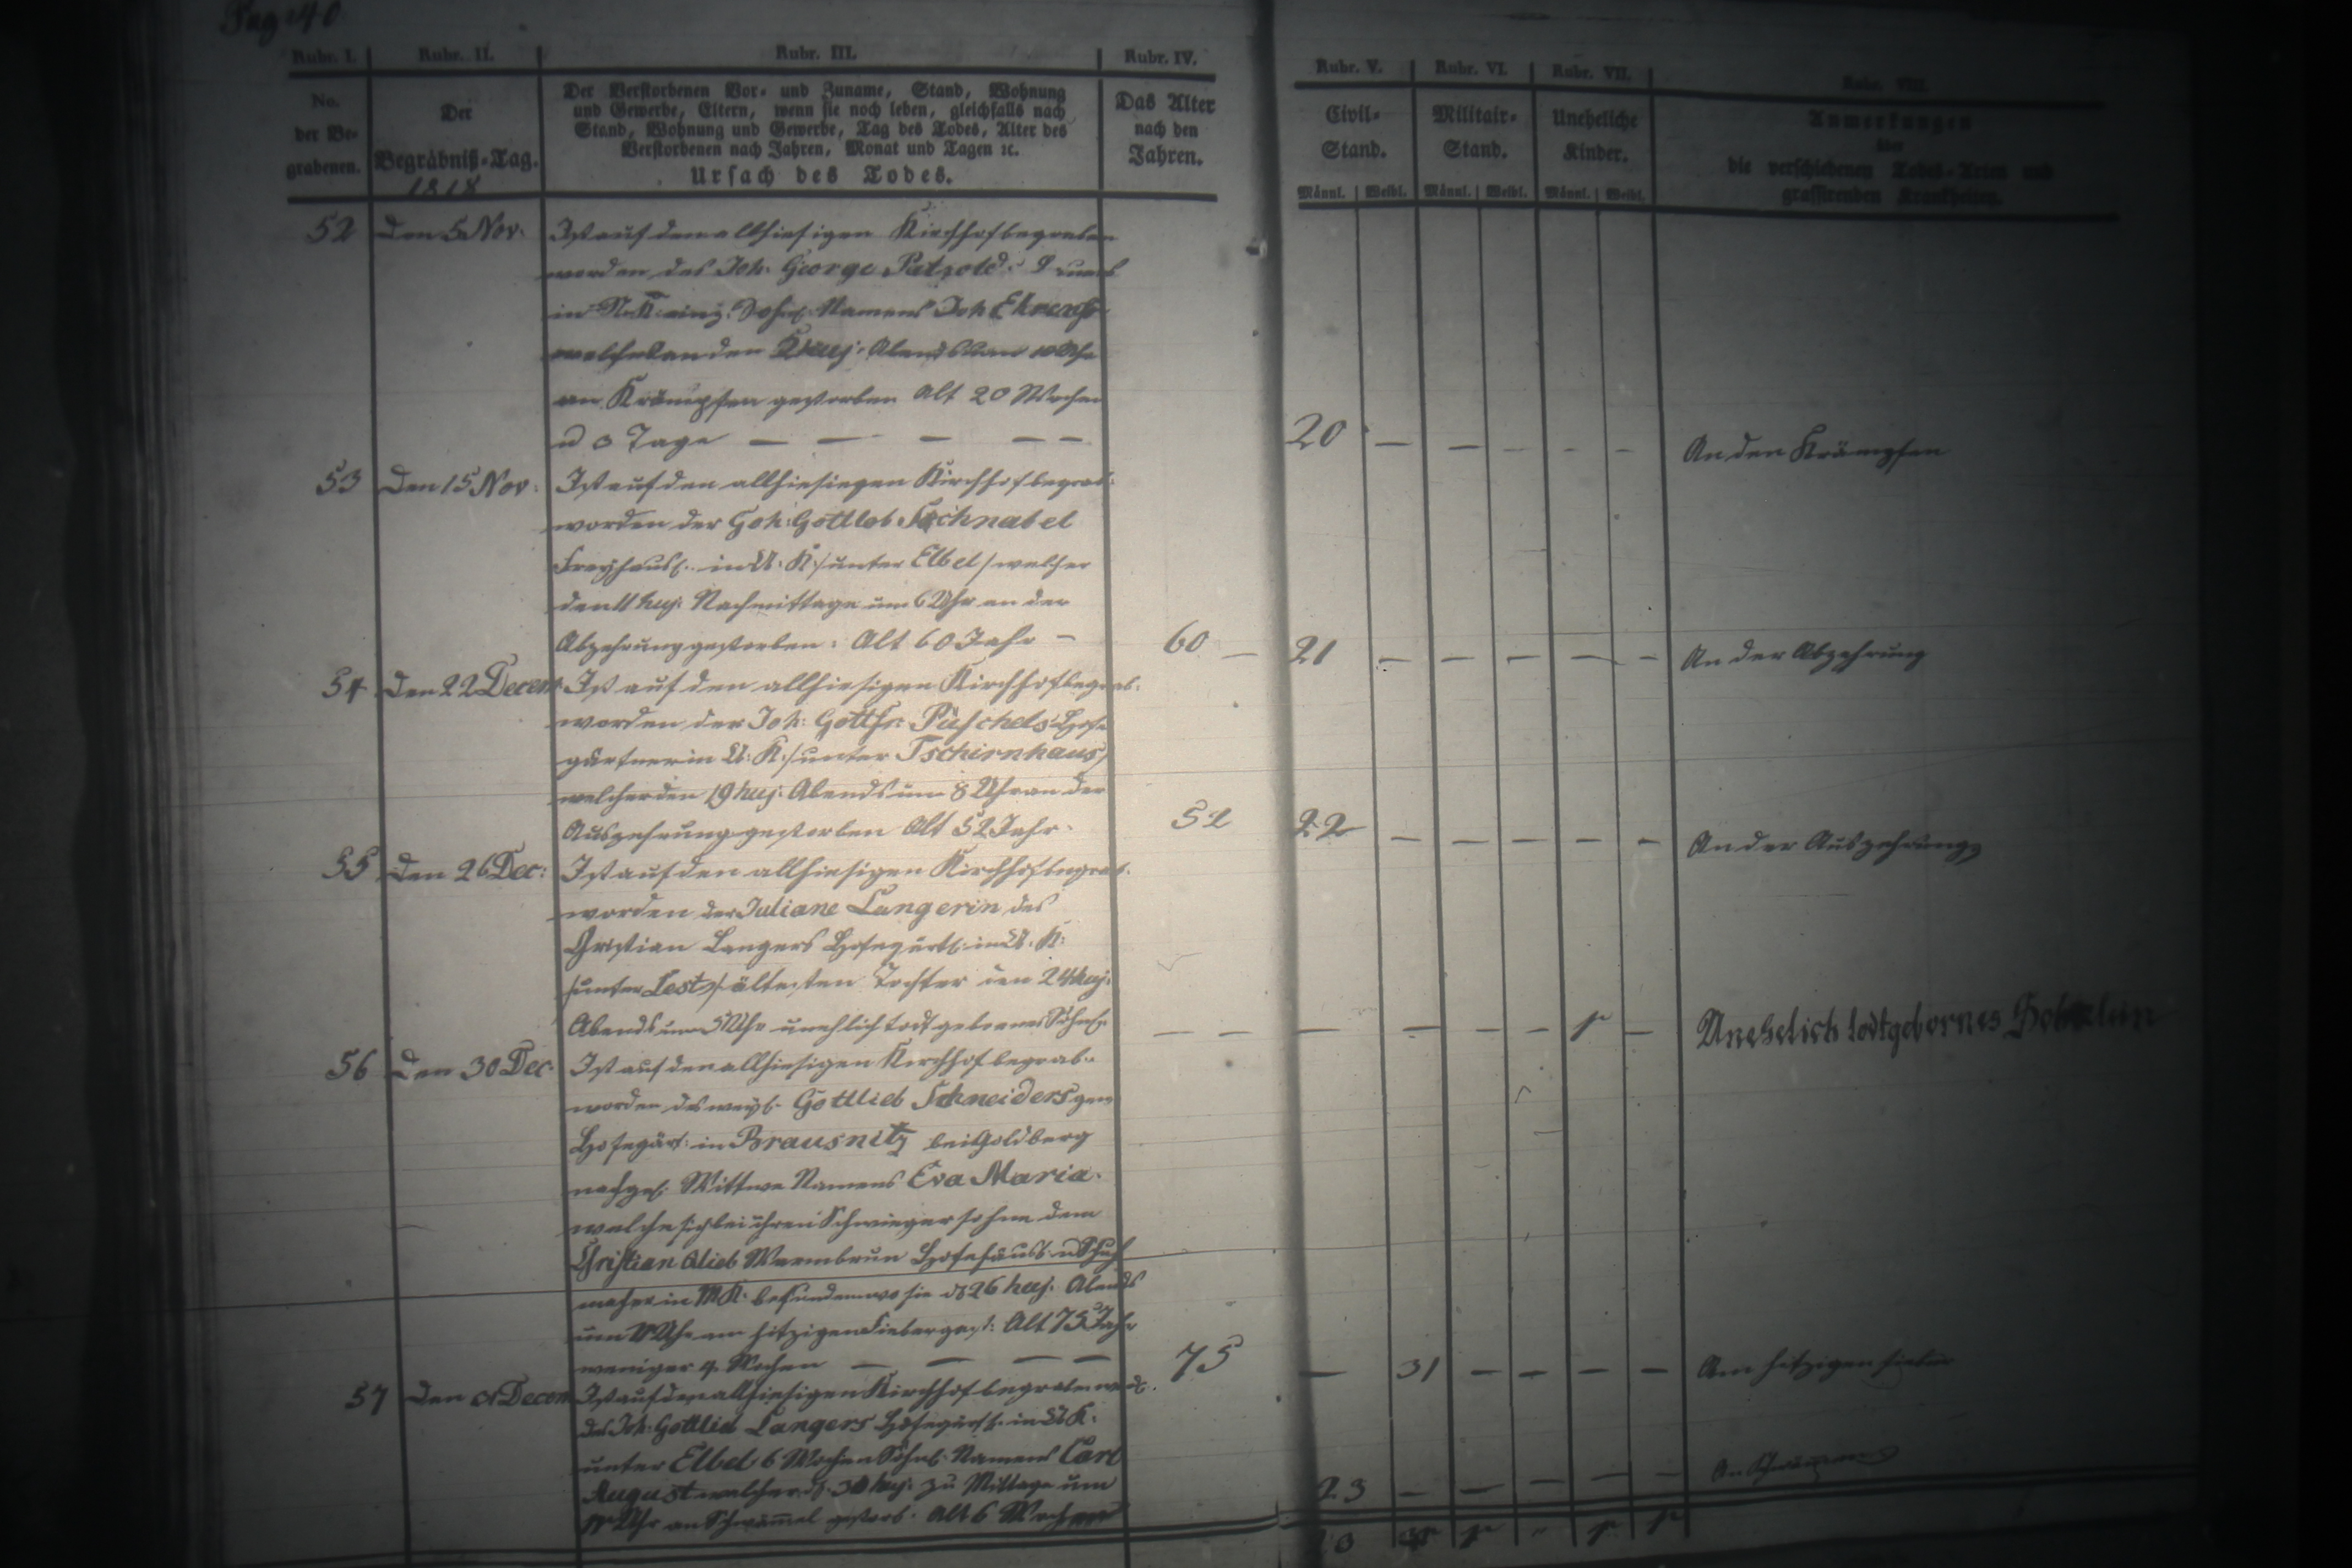 Pag 40
Rubr. I. Rubr. II. Rubr. III. Rubr. IV. Rubr. V. Rubr. VI. Rubr. VII. Rubr. VIII.
No. der Be- grabenen.
Der Begräbniß-Tag.
1818
Der Verstorbenen Vor- und Zuname, Stand, Wohnung
und Gewerbe, Eltern, wenn sie noch leben, gleichfalls nach
Stand, Wohnung und Gewerbe, Tag des Todes, Alter des
Verstorbenen nach Jahren, Monat und Tagen ꝛc.
Ursach des Todes.
Das Alter
nach den
Jahren.
Civil-
Stand.
Militair-
Stand.
Uneheliche
Kinder.
Männl. Weibl. Männl. Weibl. Männl. Weibl.
Anmerkungen
über
die verschiedenen Todes-Arten und
grassirenden Krankheiten.
52 Den 5 Nov. Ist auf dem allhiesigen Kirchhof begraben
worden des Joh. George
in N. K. einz. Söhnl. Namens Joh
welches an den huj. Abends um 10 Uhr
an Krämpfen gestorben Alt 20 Wochen
u 3 Tage — — — — — 20 — — — — — An den Krämpfen
53 Den 15 Nov: Ist auf den allhiesiegen Kirchhof begrab:
worden der Joh: Gottlob Schnabel
Freyhäusl. in U. K. /unter Elbel/ welcher
den 11 huj. Nachmittage um 6 Uhr an der
Abzehrung gestorben: Alt 60 Jahr — 60 — 21 — — — — — An der Abzehrung
54 Den 22 Decem Ist auf den allhiesigen Kirchhof begrab.
worden der Joh: Gottfr: Püschels Hofe
gärtner in U: K. /unter Tschirnhaus/
welcher den 19 huj. Abends um 8 Uhr an der
Auszehrung gestorben Alt 52 Jahr. 52 22 — — — — — An der Auszehrung
55 Den 26 Dec: Ist auf den allhiesigen Kirchhof begrab.
worden der Juliane Langerin des
Christian Langers Hofegärtl: in U. K:
/unter Lestz/ ältesten Tochter den 24 huj.
Abends um 5 Uhr unehlich todtgebornes Söhnl. — — — — — — 1 — Unehelich todtgebornes Söhnlein
56 Den 30 Dec. Ist auf den allhiesigen Kirchhof begrab.
worden des weyl. Gottlieb Schneiders gew.
Hofegärt: in Brausnitz bei Goldberg
nachgel. Wittwe Namens Eva Maria.
welche sich bei ihren Schwiegersohne dem
Christian Glieb Warmbrun Hofehäusl. u Schuh
macher in M K. befunden wo sie d 26 huj. Abends
um Uhr am hitzigen Fieber gest: Alt 75 Jahr
weniger 9 Wochen — — — — 75 — 31 — — — — Am hitzigen Fieber
57 Den Decem Ist auf den allhiesigen Kirchhof begraben word.
des Joh: Gottlieb Langers Hofegärtl. in U K.
unter Elbel 6 Wochen Söhnl. Namens Carl
August welcher d. 30 huj. zu Mittage um
Uhr an Schwämmel gestorb. Alt 6 Wochen 23 — — — — — An